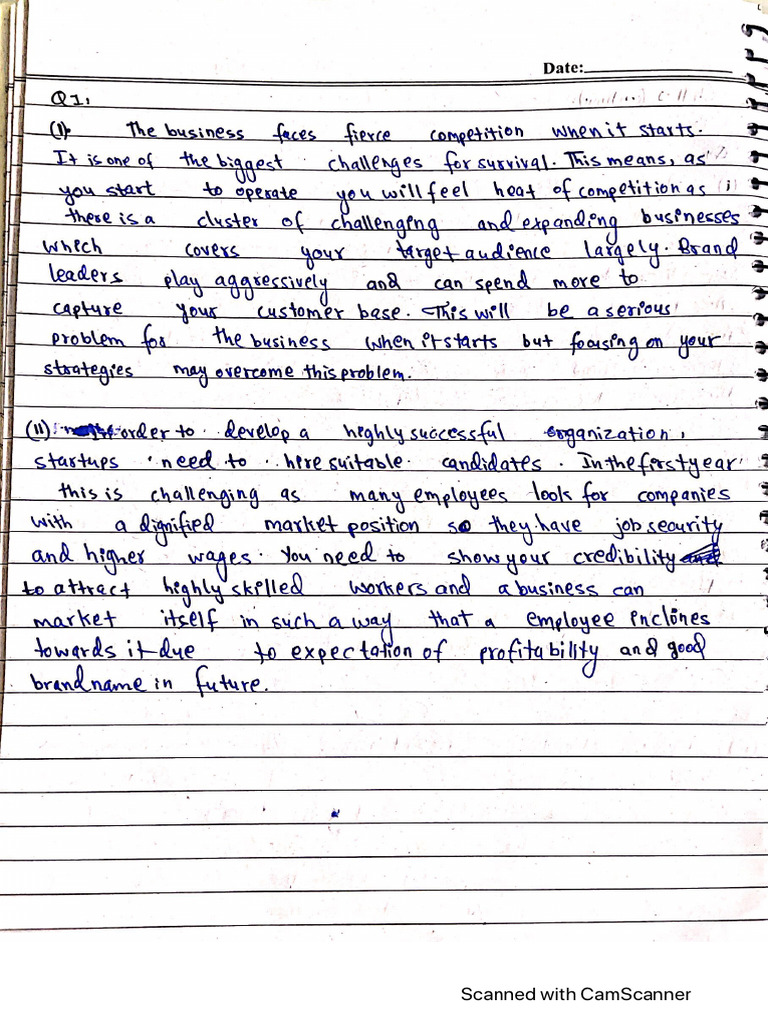 Date:
Q1.
(I) The business faces fierce competition when it starts.
It is one of the biggest challenges for survival. This means, as
you start to operate you will feel heat of competition as
there is a cluster of challenging and expanding businesses
which covers your target audience largely. Brand
leaders play aggressively and can spend more to
capture your customer base. This will be a serious
problem for the business when it starts but focusing on your
strategies may overcome this problem.
(II) order to develop a highly successful organization,
startups need to hire suitable candidates. In the first year
this is challenging as many employees look for companies
with a dignified market position so they have job security
and higher wages. You need to show your credibility
to attract highly skilled workers and a business can
market itself in such a way that a employee inclines
towards it due to expectation of profitability and good
brand name in future.
Scanned with CamScanner